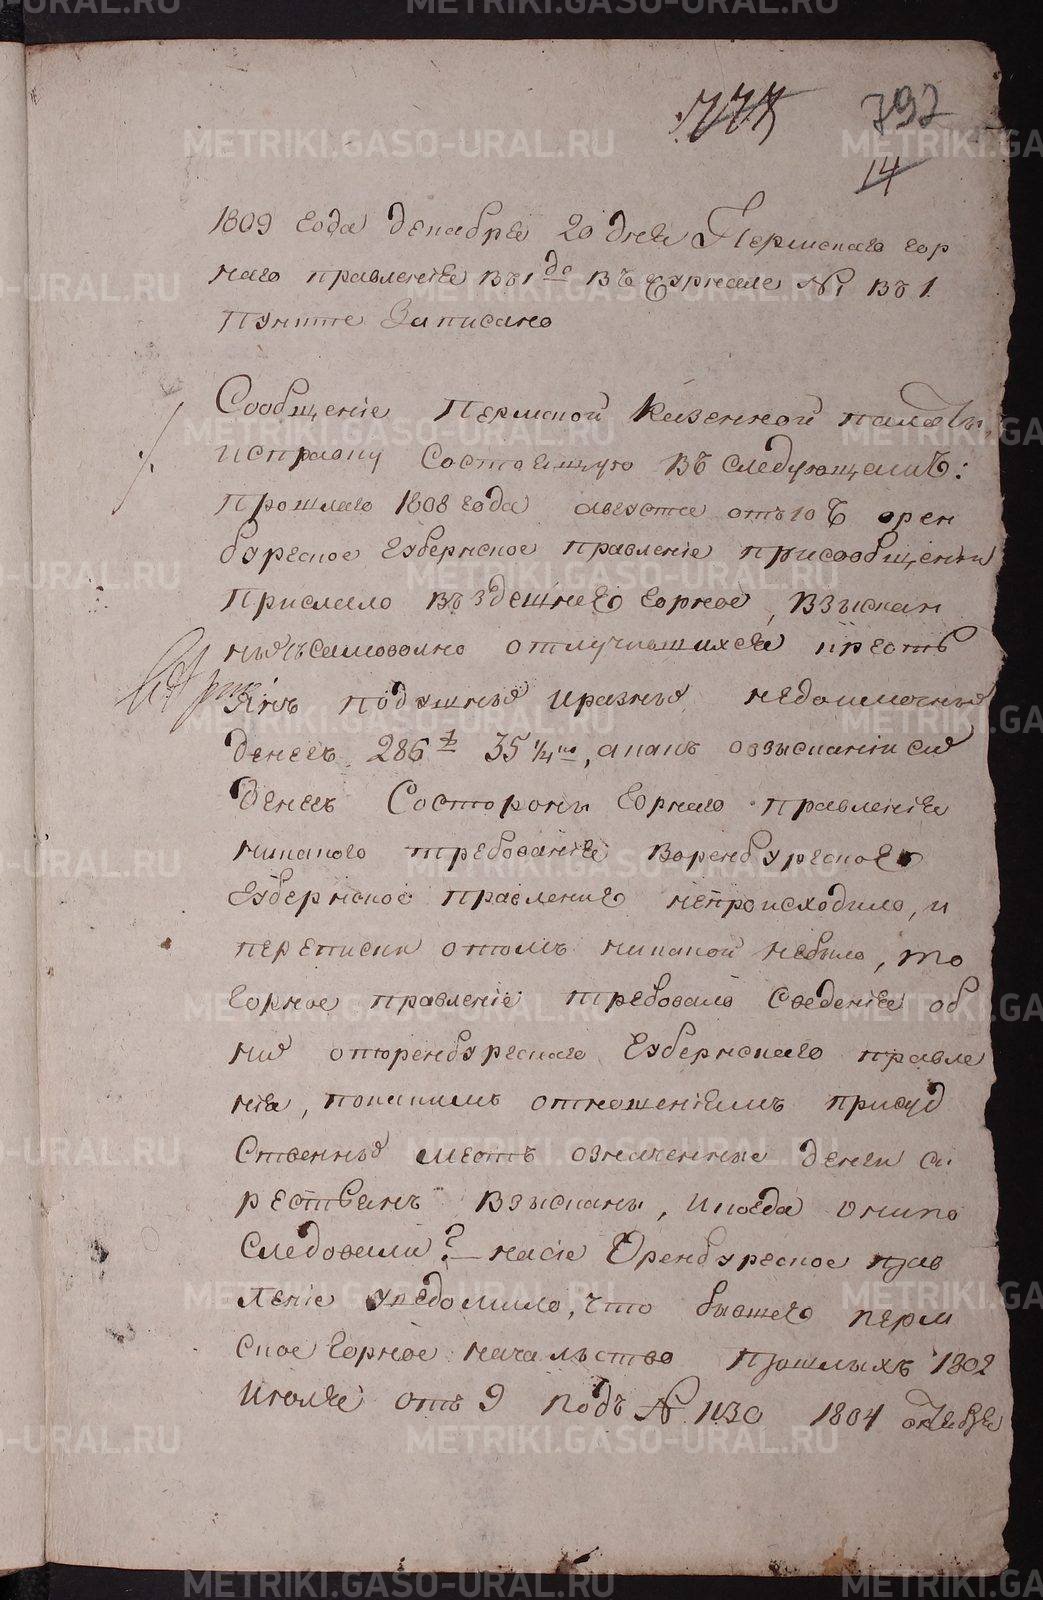 777
792
14
1809 года декабря 20 дня Пермскаго гор
наго правления въ 1 де въ журнале № 1 въ 1
Пункте Записано
Сообщение Пермской Казенной палаты
исправку Состоящую въ следующемъ:
Прошлаго 1808 года августа отъ 10 Ч орен
бургское Губернское правление присообщении
Прислало въ здешнее горное, взыскан
ныя съ самовольно отлучившихся крестья
янъ подушныя и разныя недоимочныя
денегъ 286 35 1/4, а какъ о взыскании сихъ
денегъ Состороны Горнаго правления
никакого требования в оренбургское
Губернское правление непроисходило, и
переписки о томъ никакой небыло, то
Горное правление требовало сведения об
ния отъ оренбургскаго Губернскаго правле
ния, по какимъ отношениямъ присуд
ственныхъ местъ означенныя деньги с к
рестьянъ взысканы, и когда оныя по
следовали? на сие Оренбургское прав
ление уведомило, что бывшее перм
ское Горное начальство прошлыхъ 1802
июля отъ 9 подъ № 1130 1804 октября